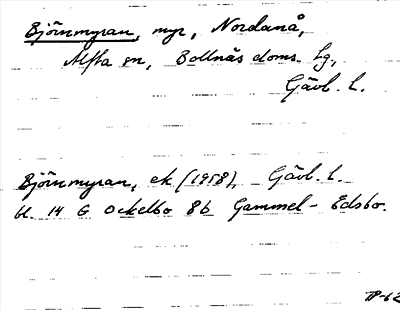 Björnmyran, myr, Nordanå,
Alfta sn, Bollnäs doms. lg.,
Gävl. l.
Björnmyran, ek (1958), Gävl. l.
bl. 14 G Ockelbo 8b Gammel-Edsbo.